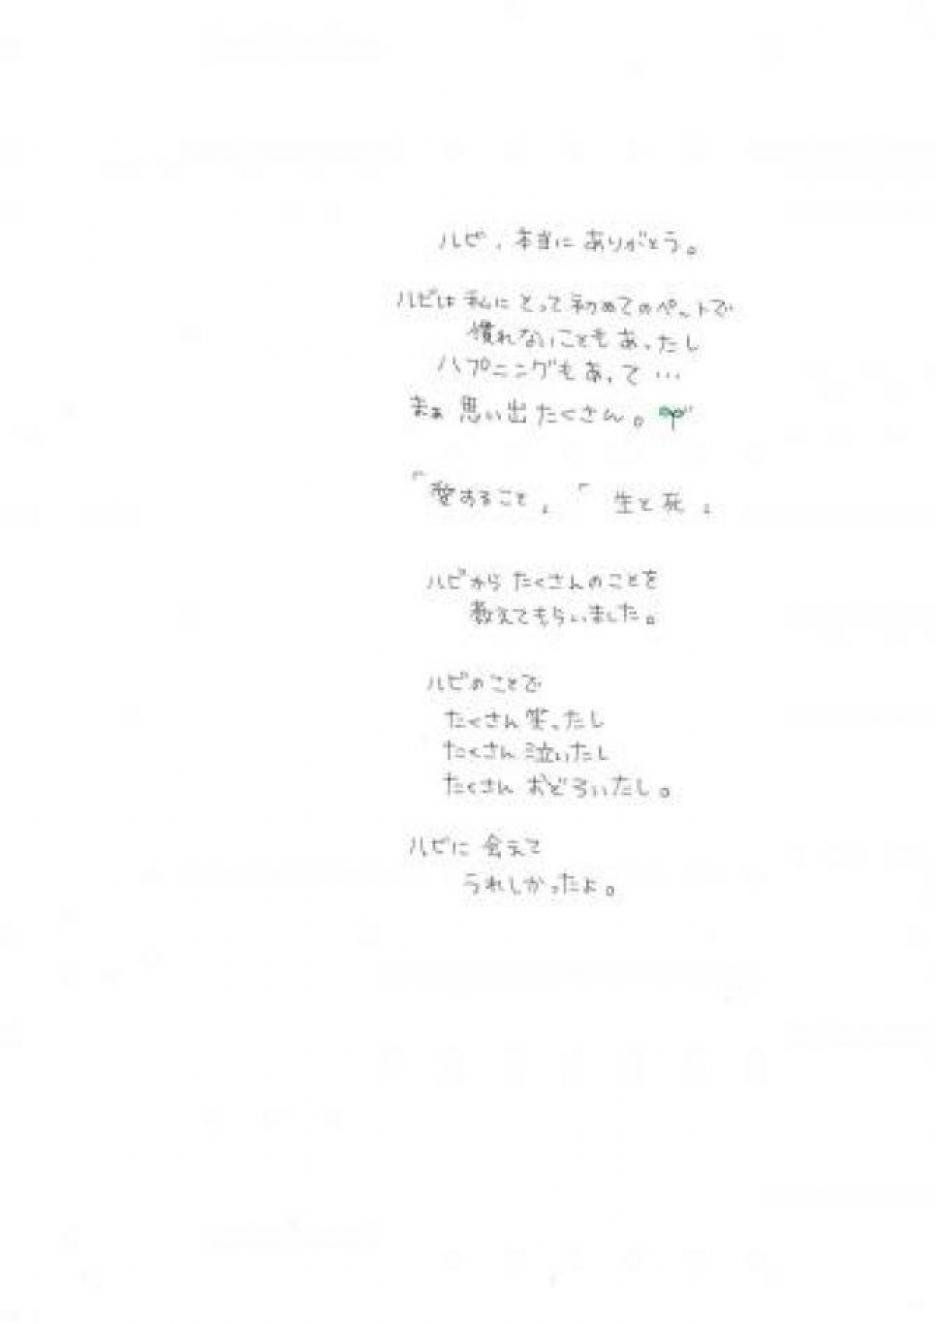 ルビ、本当に ありがとう。
ルビは 私に とって 初めてのペットで
慣れないことも あったし
ハプニングも あって…
まぁ 思い出 たくさん。
「愛すること」「生と死」
ルビから たくさんのことを
教えてもらいました。
ルビのことで
たくさん 笑ったし
たくさん 泣いたし
たくさん おどろいたし。
ルビに 会えて
うれしかったよ。